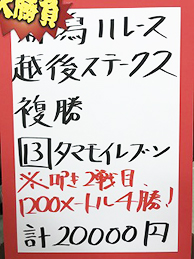 大勝負
新潟11レース
越後ステークス
複勝
13 タマモイレブン
※叩き2戦目
1200メートル4勝!
計20000円